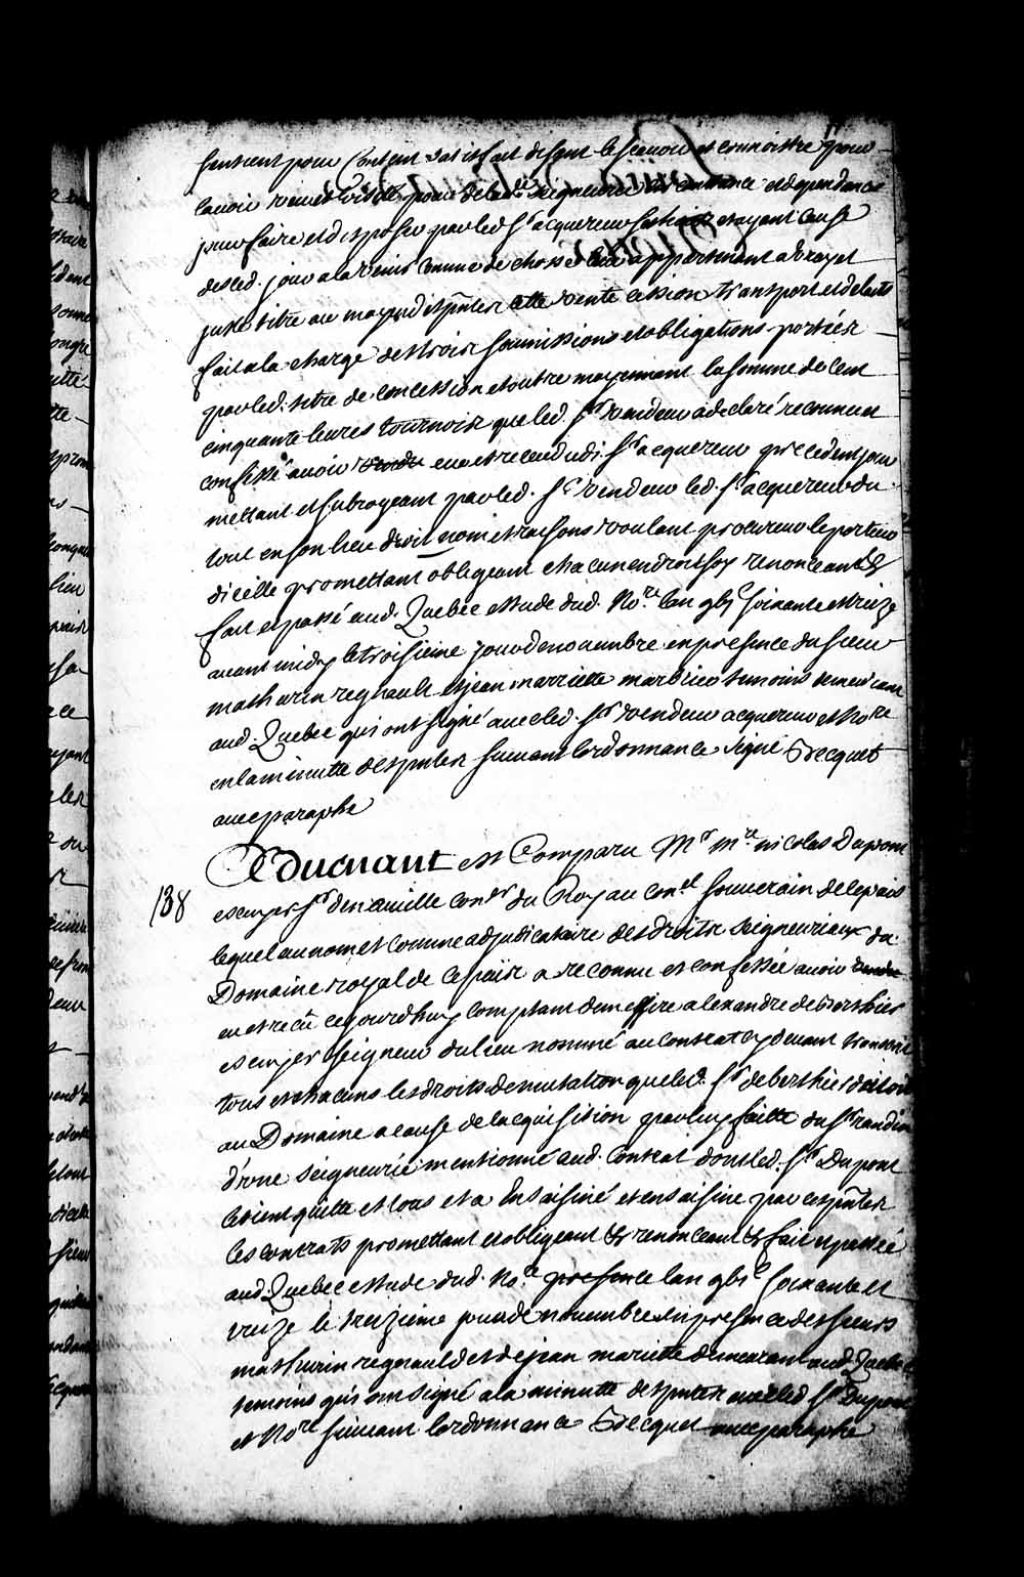 content et satisfait disant le scavoir et connoistre pour
lavoir veue et visitée pour de lad. seigneurie et dependance
jouir faire et disposer par led. sr. acquereur et ayant cause
desced. jour a lavenir comme de chose a luy appartenant a vray et
juste titre au moyen des pntes cette vente cession transport et delais
fait a la charge des trois soumissions et obligations portées
par led. titre de concession et outre moyennant la somme de cent
cinquante livres tournois que led. sr. vendeur a declaré reconnu et
confessé avoir eue et receu dud. sr. acquereur precedent jour
mettant et subrogeant par led. sr. vendeur led. sr. acquereur du
tout en son lieu droit nom et raisons voulant procureur le porteur
dicelle promettant obligeant chacun en droit soy renonceant &
fait et passé aud. Quebec estude dud. Nore. lan gbic soixante et treize
avant midy le troisieme jour de novembre en presence du sieur
mathurin regnault et jean mariette temoins demeurant
aud. Quebec qui ont signé avec led. sr. vendeur acquereur et Nore
en la minutte des pntes suivant lordonnance signé Becquet
avec paraphe
Et Comparu Mr. me. nicolas Dupont
138
escuyer sr. de neuville coner. du Roy au conel. souverain de ce pais
lequel au nom et comme adjudicataire des droits seigneuriaux du
Domaine royal de ce pais a reconnu et confessé avoir
eu et recu ce jourdhuy comptant de messire alexandre de berthier
escuyer seigneur du lieu nommé au contrat cy devant transcrit
tous et chacuns les droits de mutation que led. sr. de berthier doit
au Domaine a cause de lacquisition par luy faitte du sr. randin
d'une seigneurie mentionné aud. Contrat dont led. sr. Dupont
tient quitte et tous et a Ensaisiné et ensaisine par ces pntes
les contrats promettant et obligeant & renonceant & fait et passé
aud. Quebec estude dud. Nore. presence lan gbic soixante et
treize le treizieme jour de novembre en presence des sieurs
mathurin regnauld et de jean mariette demeurant aud. Quebec
temoins qui ont signé a la minutte des pntes avec led. sr. Dupont
et Nore suivant lordonnance Becquet avec paraphe